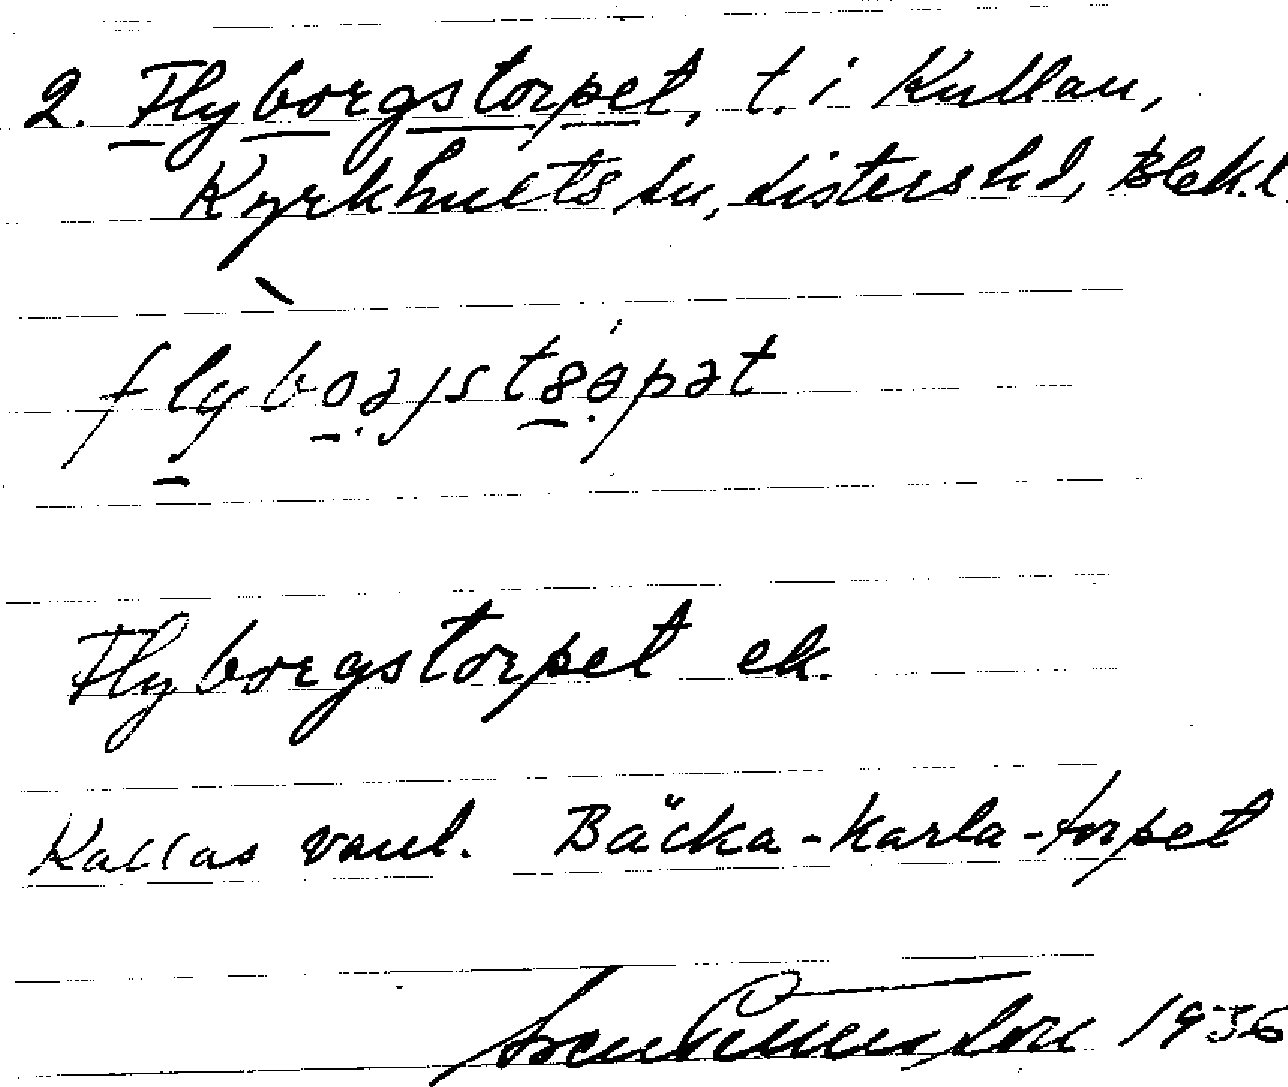 2. Flyborgstorpet, t. i Kullan,
Kyrkhults sn, Listers hd, Blek. l.
Flyborgstorpet ek.
Kallas vanl. Bäcka-Karla-torpet
1936